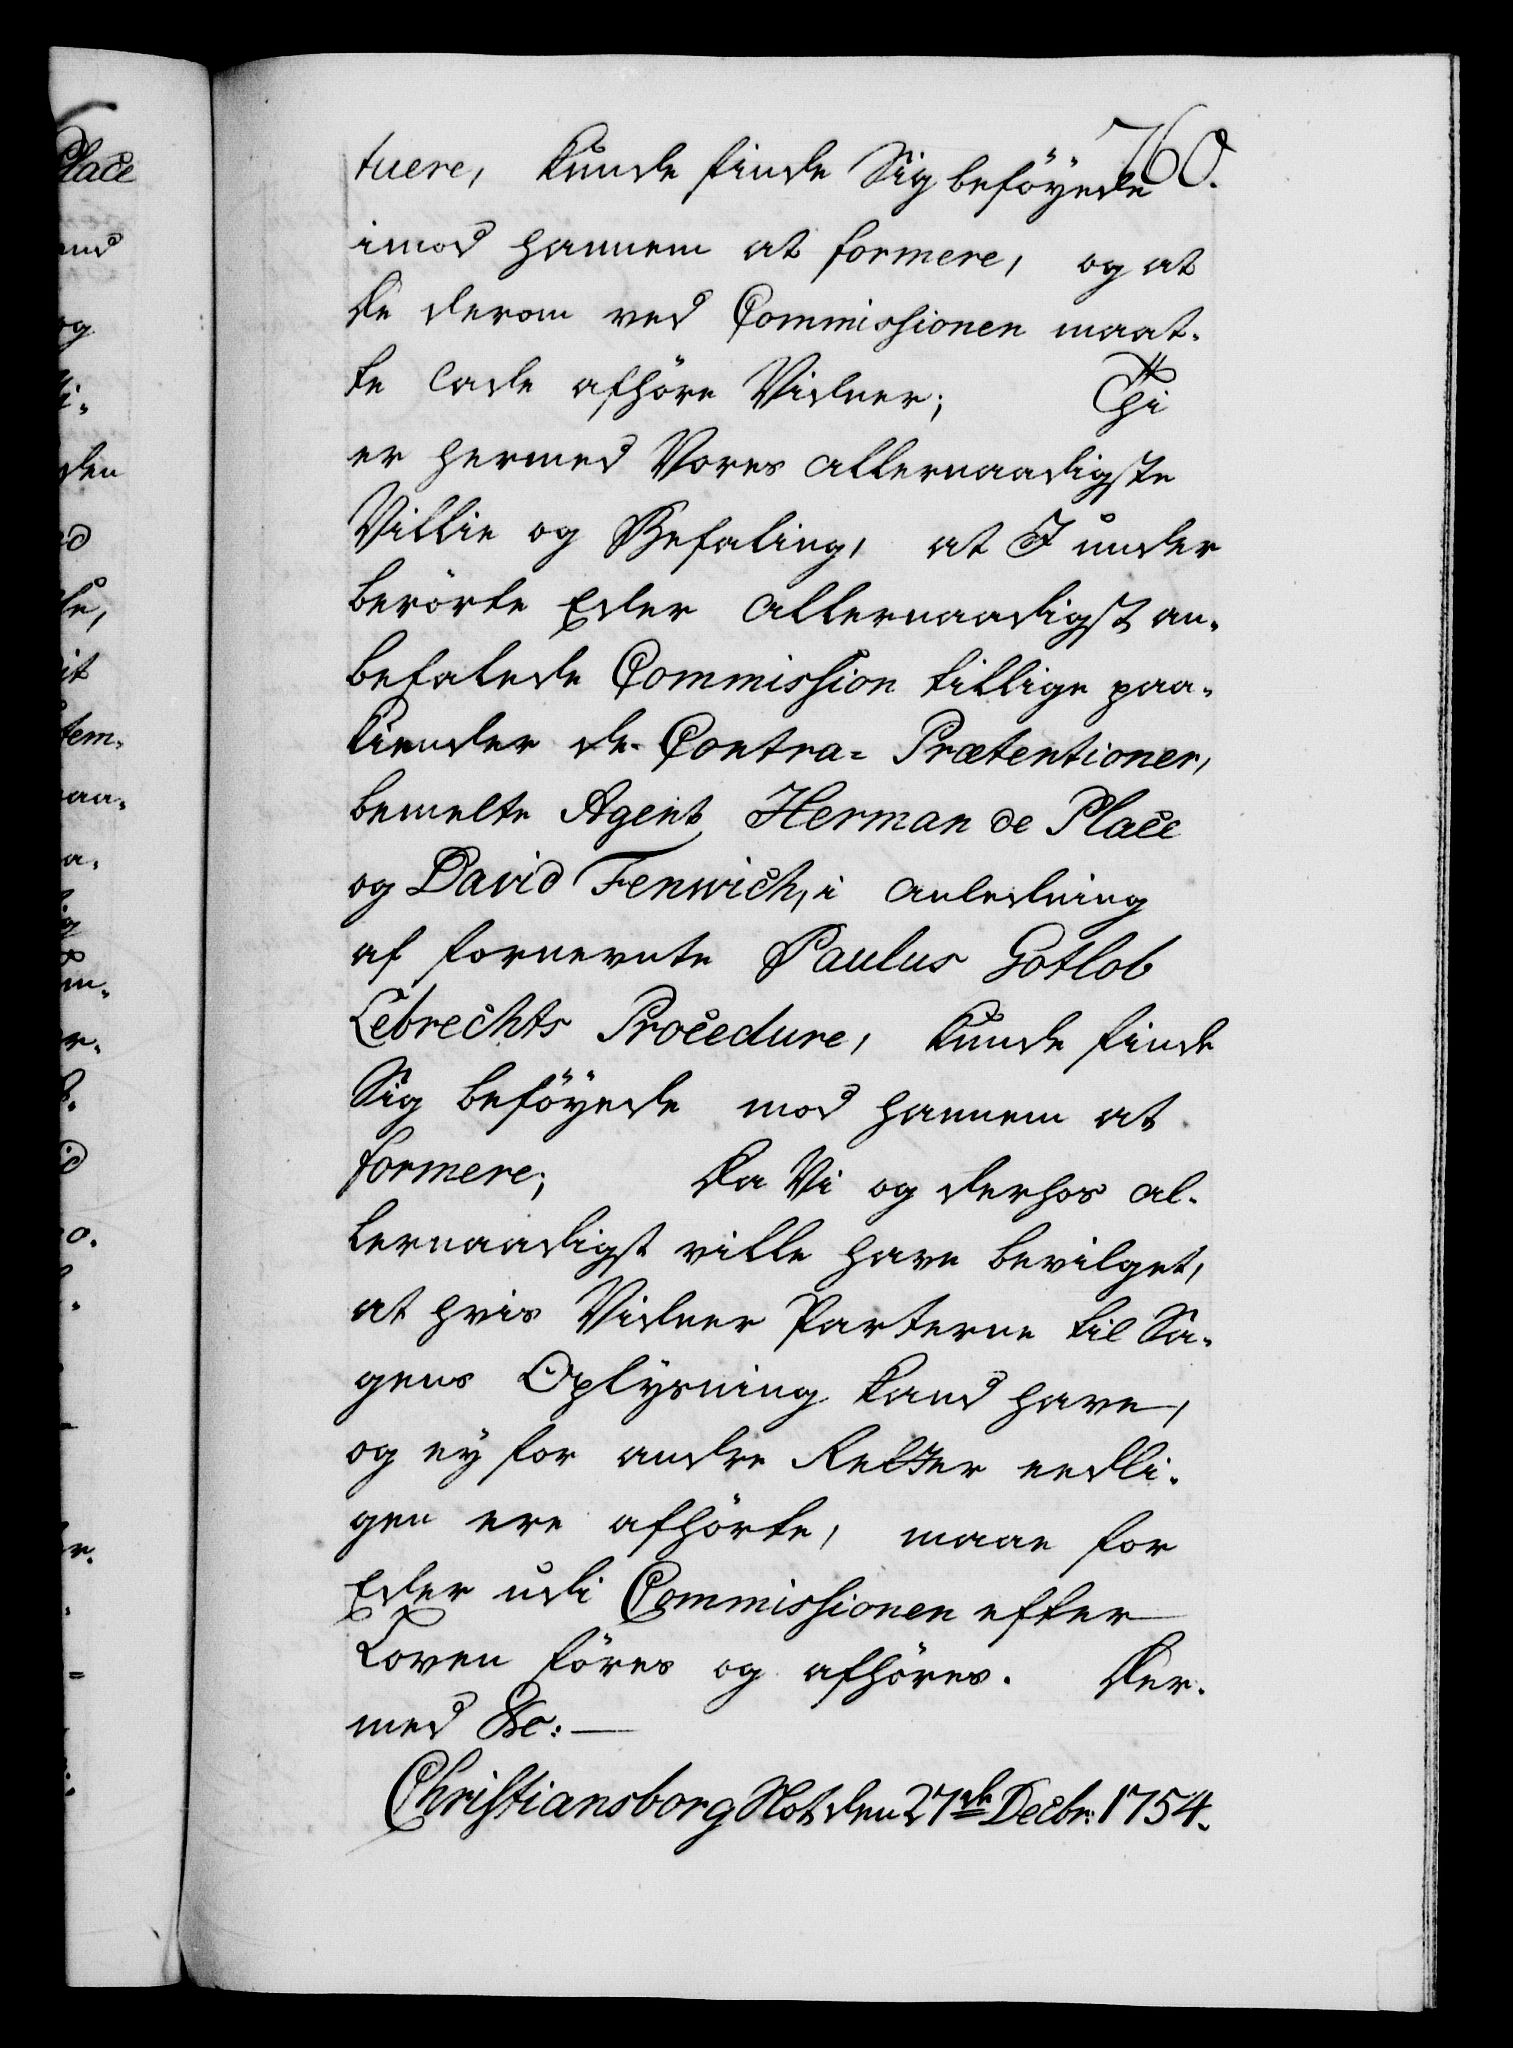 760.
tuere, kunde finde Sig beföyede
imod hannem at formere, og at
de derom ved Commissionen maat-
te lade afhöre Vidner; Thi
er hermed Vores allernaadigste
Villie og Befaling, at I under
berörte Eder allernaadigst an-
befalede Commission tillige paa-
kiender de Contra-Prætentioner,
bemelte Agent Herman de Place
og David Fenwich, i anledning
af fornevnte Paulus Gotlob
Lebrechts Procedure, kunde finde
Sig beföyede mod hannem at
formere; Da Vi og derhos al-
lernaadigst ville have bevilget,
at hvis Vidner Parterne til Sa-
gens Oplysning kand have,
og ey for andre Retter eedli-
gen ere afhörte, maae for
Eder udi Commissionen efter
Loven föres og afhöres. Der-
med &c:
Christiansborg Slot den 27de Decbr: 1754.